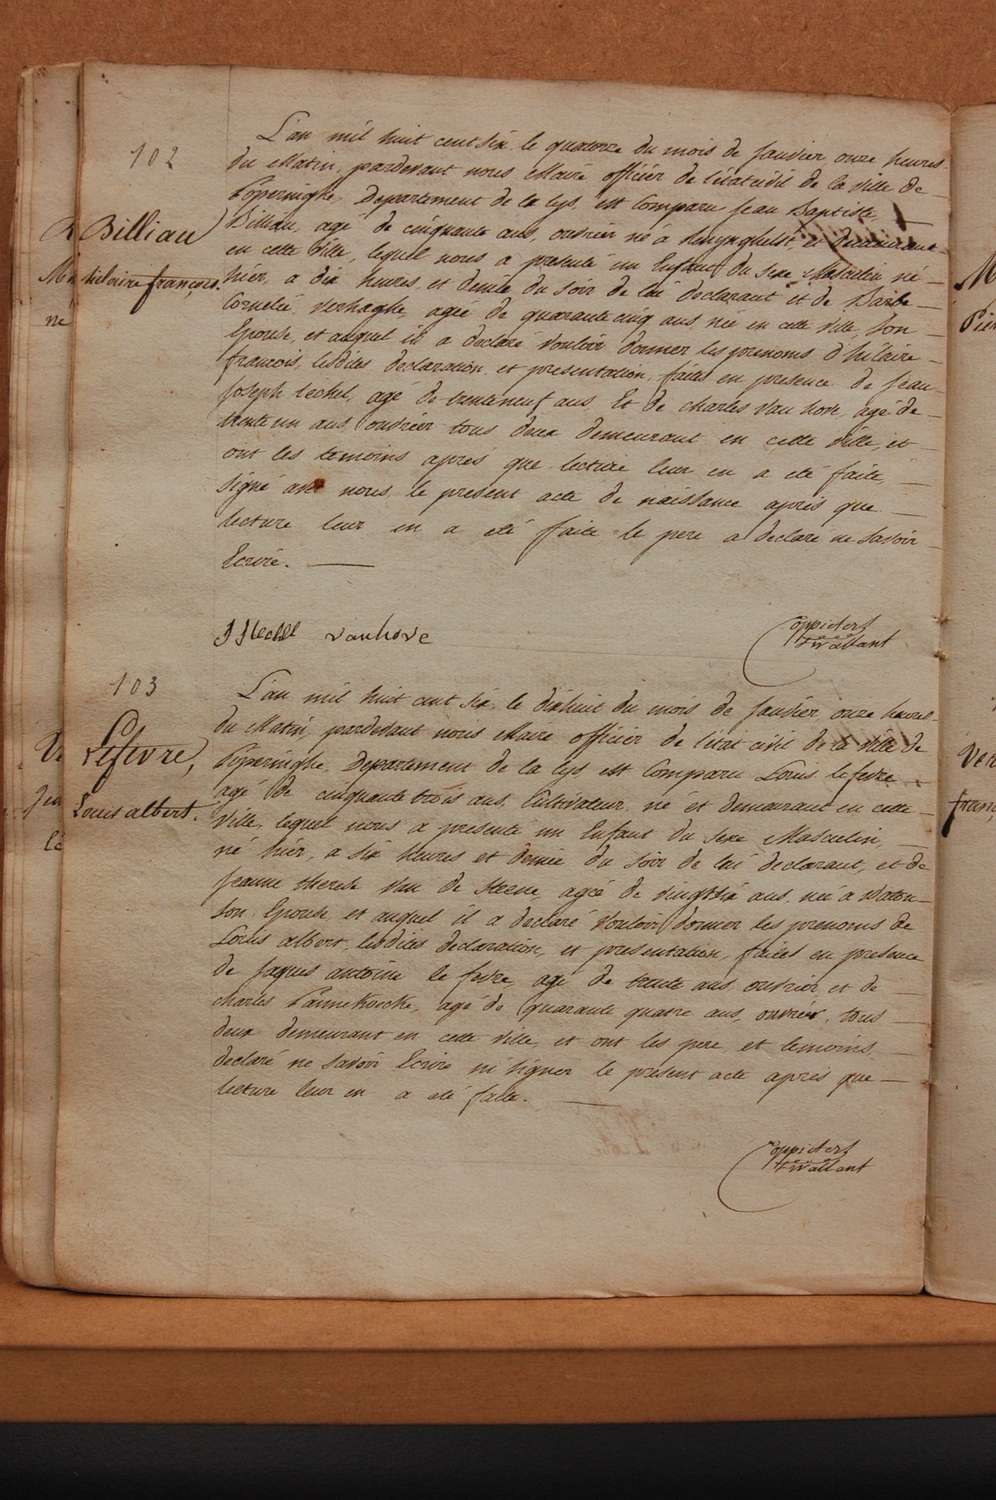 102
Billiau
hilaire françois.
L'an mil huit cent six le quatorze du mois de Janvier onze heures
du Matin, pardevant nous Maire officier de l'état civil de la Ville de
Poperinghe, Departement de la Lys est Comparu Jean Baptiste
Billiau, agé de cinquante ans, ouvrier né à Renynghelst et Demeurant
en cette Ville, lequel nous a presenté un Enfant du sexe Masculin né
hier, a dix heures et demie du soir de lui declarant et de Barbe
Cornelie verhaghe agée de quarante cinq ans née en cette Ville son
Epouse, et auquel il a declaré Vouloir donner les prenoms d'hilaire
françois, lesdites declaration et presentation, faites en presence de Jean
Joseph Techel, agé de trenteneuf ans Et de charles Van hove, agé de
trente un ans ouvrier tous deux demeurant en cette Ville, et
ont les temoins après que lecture leur en a été faite,
signé avec nous le present acte de naissance après que
lecture leur en a été faite le pere a declaré ne savoir
Ecrire.
vanhove
103
Lefevre,
Louis albert.
L'an mil huit cent six, le dixhuit du mois de Janvier onze heures
du Matin, pardevant nous Maire officier de l'état civil de la Ville de
Poperinghe, Departement de la Lys est Comparu Louis lefevre
agé de cinquante trois ans, Cultivateur, né et demeurant en cette
Ville, lequel nous a presenté un Enfant du sexe Masculin,
né hier, a six heures et demie du soir de lui declarant, et de
Jeanne therese Van de Steene, agée de vingtsix ans, née a Waton
son Epouse, et auquel il a declaré Vouloir donner les prenoms de
Louis albert, lesdites declaration, et presentation, faites en presence
de Jaques antoine le fevre, agé de trente ans ouvrier, et de
charles Pannekoecke, agé de quarante quatre ans, ouvrier, tous
deux demeurant en cette Ville, et ont les pere et temoins
declaré ne savoir Ecrire ni signer le présent acte après que
lecture leur en a été faite.